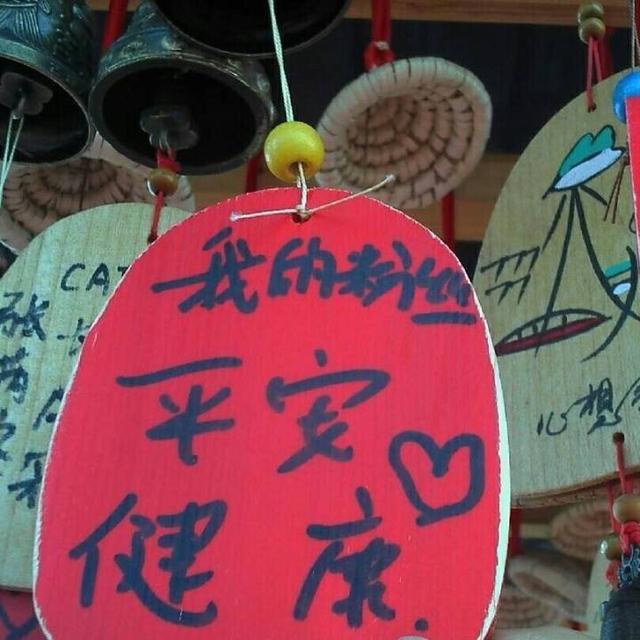 我的粉丝
平安
健康.
CAT
心想